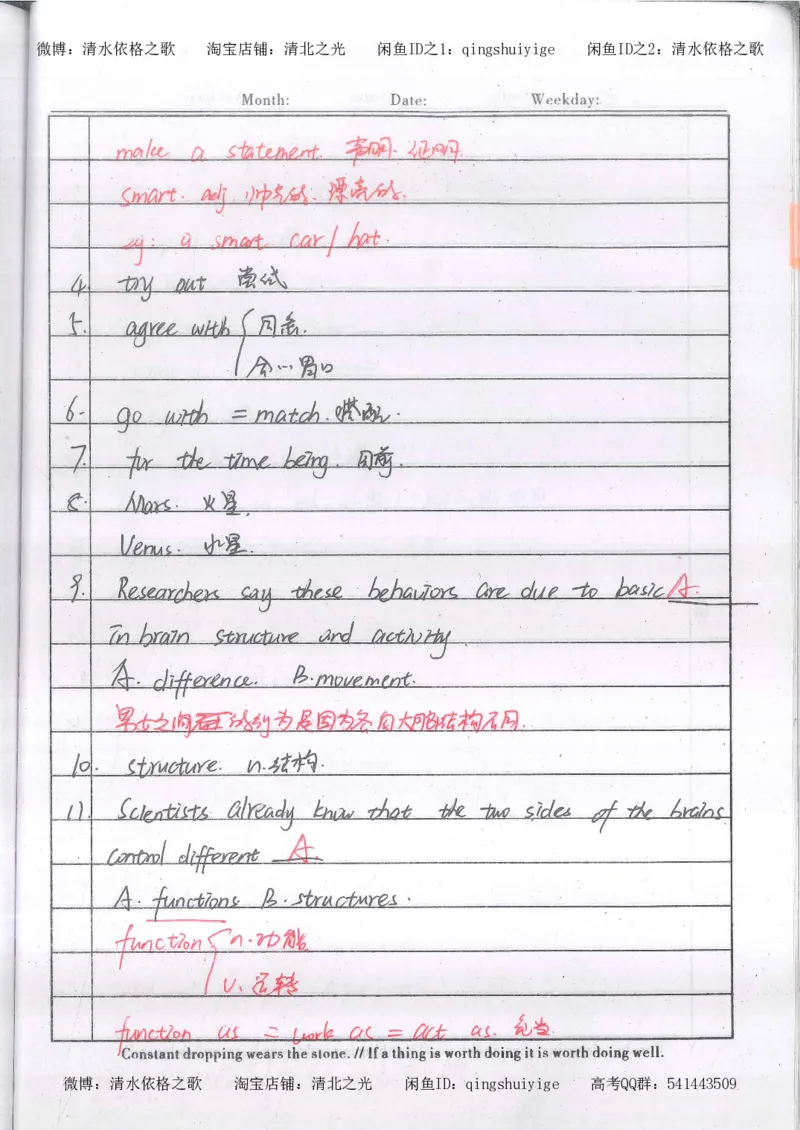 微博：清水依格之歌 淘宝店铺：清北之光 闲鱼ID之1：qingshuiyige 闲鱼ID之2：清水依格之歌
Month: Date: Weekday:
make a statement. 声明. 证明.
smart. adj. 帅气的. 漂亮的.
eg: a smart car/hat.
4. try out 尝试
5. agree with { 同意.
合…胃口
6. go with = match. 搭配.
7. for the time being. 目前.
8. Mars. 火星.
Venus. 水星.
9. Researchers say these behaviors are due to basic A.
in brain structure and activity.
A. difference. B. movement.
男女之间 的行为是因为各自大脑结构不同.
10. structure. n.结构.
11. Scientists already know that the two sides of the brains
control different A.
A. functions B. structures.
function { n.功能
v. 运转
function as = work as = act as. 充当.
Constant dropping wears the stone. // If a thing is worth doing it is worth doing well.
微博：清水依格之歌 淘宝店铺：清北之光 闲鱼ID：qingshuiyige 高考QQ群：541443509